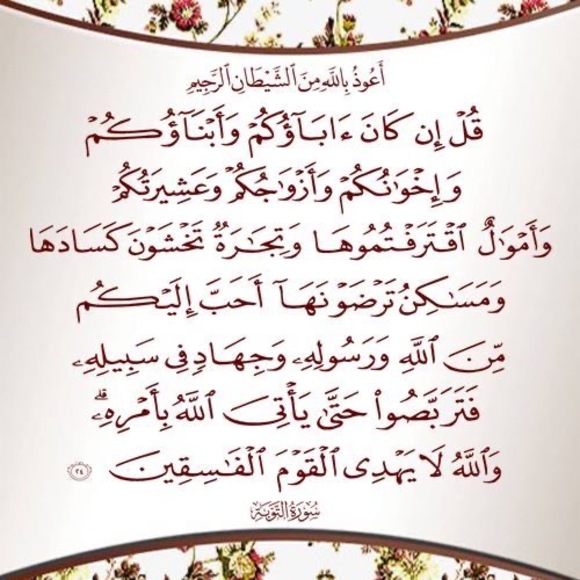 أَعُوذُ بِٱللَّهِ مِنَ ٱلشَّيْطَانِ ٱلرَّجِيمِ
قُلْ إِن كَانَ ءَابَآؤُكُمْ وَأَبْنَآؤُكُمْ
وَإِخْوَٰنُكُمْ وَأَزْوَٰجُكُمْ وَعَشِيرَتُكُمْ
وَأَمْوَٰلٌ ٱقْتَرَفْتُمُوهَا وَتِجَٰرَةٌ تَخْشَوْنَ كَسَادَهَا
وَمَسَٰكِنُ تَرْضَوْنَهَآ أَحَبَّ إِلَيْكُم
مِّنَ ٱللَّهِ وَرَسُولِهِۦ وَجِهَادٍ فِى سَبِيلِهِۦ
فَتَرَبَّصُوا۟ حَتَّىٰ يَأْتِىَ ٱللَّهُ بِأَمْرِهِۦ ۗ
وَٱللَّهُ لَا يَهْدِى ٱلْقَوْمَ ٱلْفَٰسِقِينَ ٢٤
سُورَةُ التَّوْبَةِ